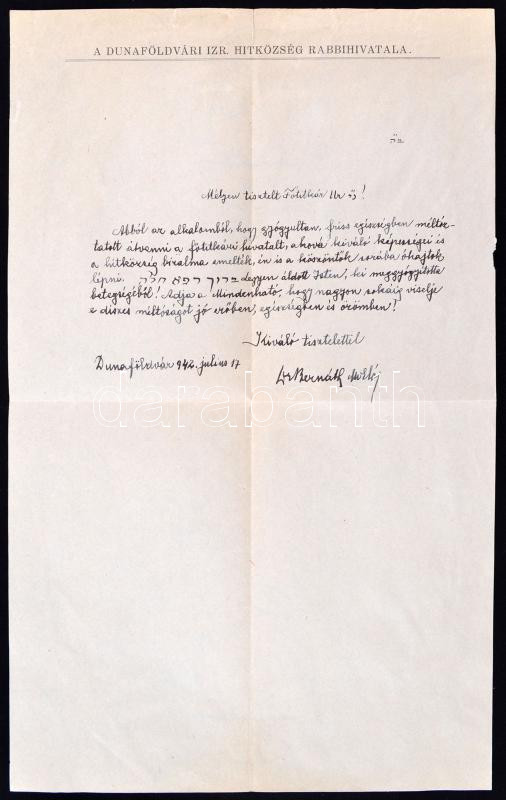 A DUNAFÖLDVÁRI IZR. HITKÖZSÉG RABBIHIVATALA.
ב״ה
Mélyen tisztelt Főtitkár Ur !
Abból az alkalomból, hogy gyógyultan, friss egészségben méltóz-
tatott átvenni a főtitkári hivatalt, a hová kiváló képességei és
a hitközség bizalma emelték, én is a köszöntők sorába óhajtok
lépni. ברוך רפא חי״ה Legyen áldott Isten, ki meggyógyította
betegségéből! Adja a Mindenható, hogy nagyon sokáig viselje
e díszes méltóságot jó erőben, egészségben és örömben!
Kiváló tisztelettel
Dunaföldvár 942. julius 17
Dr Bernáth Miklós
darabanth